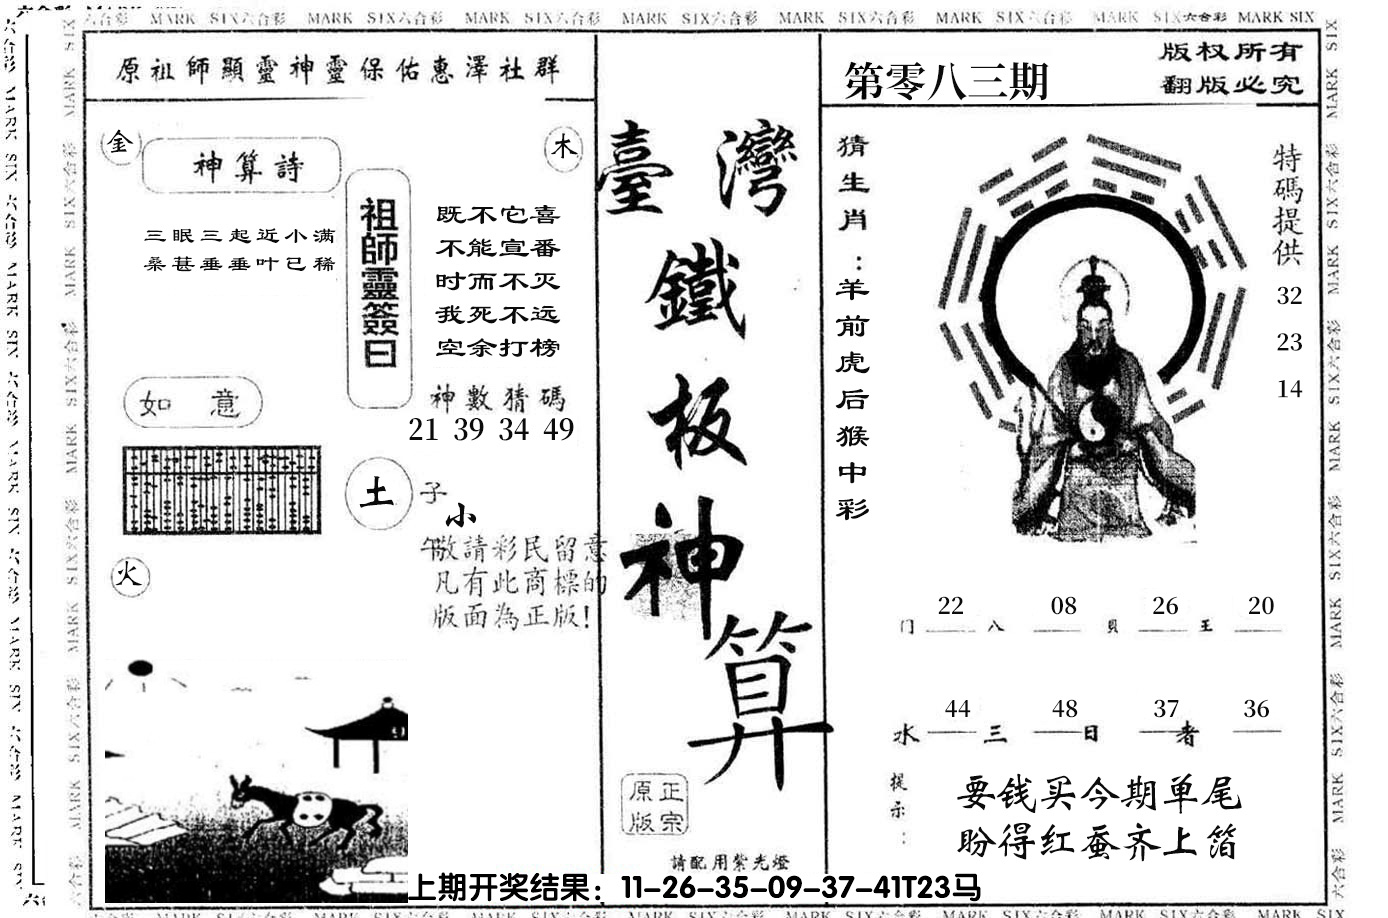 原祖師顯靈神靈保佑惠澤社群
金
木
神算詩
三眠三起近小满
桑葚垂垂叶已稀
祖師靈簽曰
既不它喜
不能宣番
时而不灭
我死不远
空余打榜
神數猜碼
21 39 34 49
如意
土
子
小
午
敬請彩民留意
凡有此商標的
版面為正版!
火
臺灣
鐵
板
神
算
原正
版宗
請配用紫光燈
第零八三期
版权所有
翻版必究
猜生肖:羊前虎后猴中彩
特碼提供
32
23
14
22 08 26 20
门 八 貝 王
44 48 37 36
水 三 日 者
提示:
要钱买今期单尾
盼得红蚕齐上箔
上期开奖结果：11-26-35-09-37-41T23马
MARK SIX六合彩 MARK SIX六合彩 MARK SIX六合彩 MARK SIX六合彩 MARK SIX六合彩 MARK SIX六合彩 MARK SIX六合彩 MARK SIX